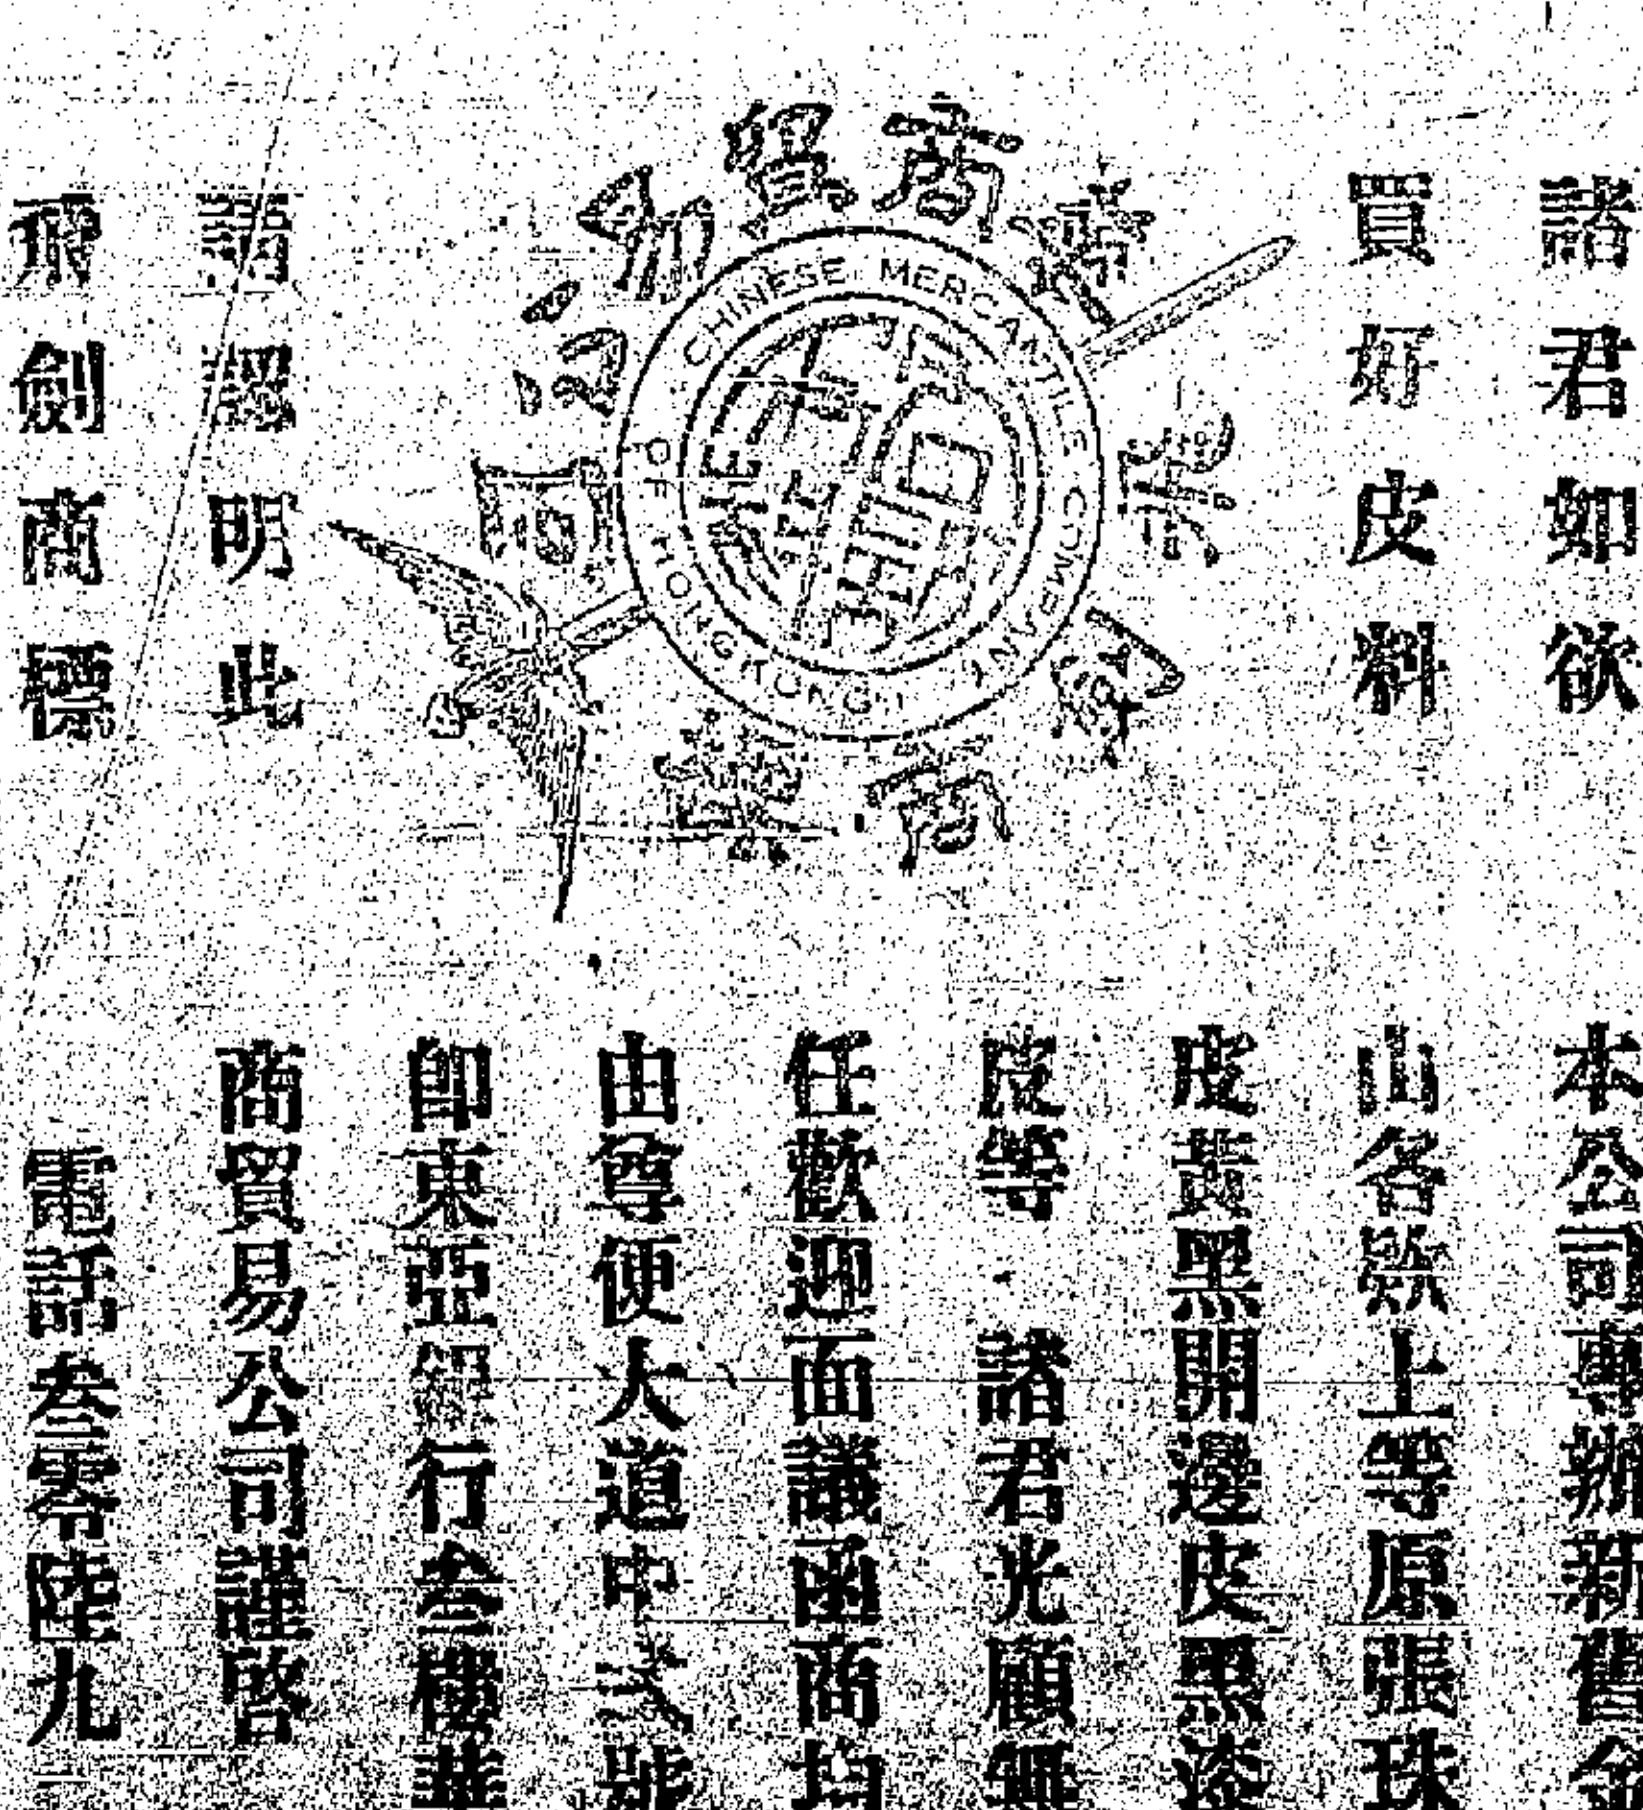 諸君如欲
買好皮料
CHINESE MERCANTILE COMPANY
OF HONGKONG
請認明此
飛劍商標
本公司專辦新舊金
山各㨾上等原張珠
皮黃黑開邊皮黑漆
皮等 諸君光顧無
任歡迎面議函商均
由尊便大道中弍號
即東亞銀行叁樓華
商貿易公司謹啓
電話叁零陸九